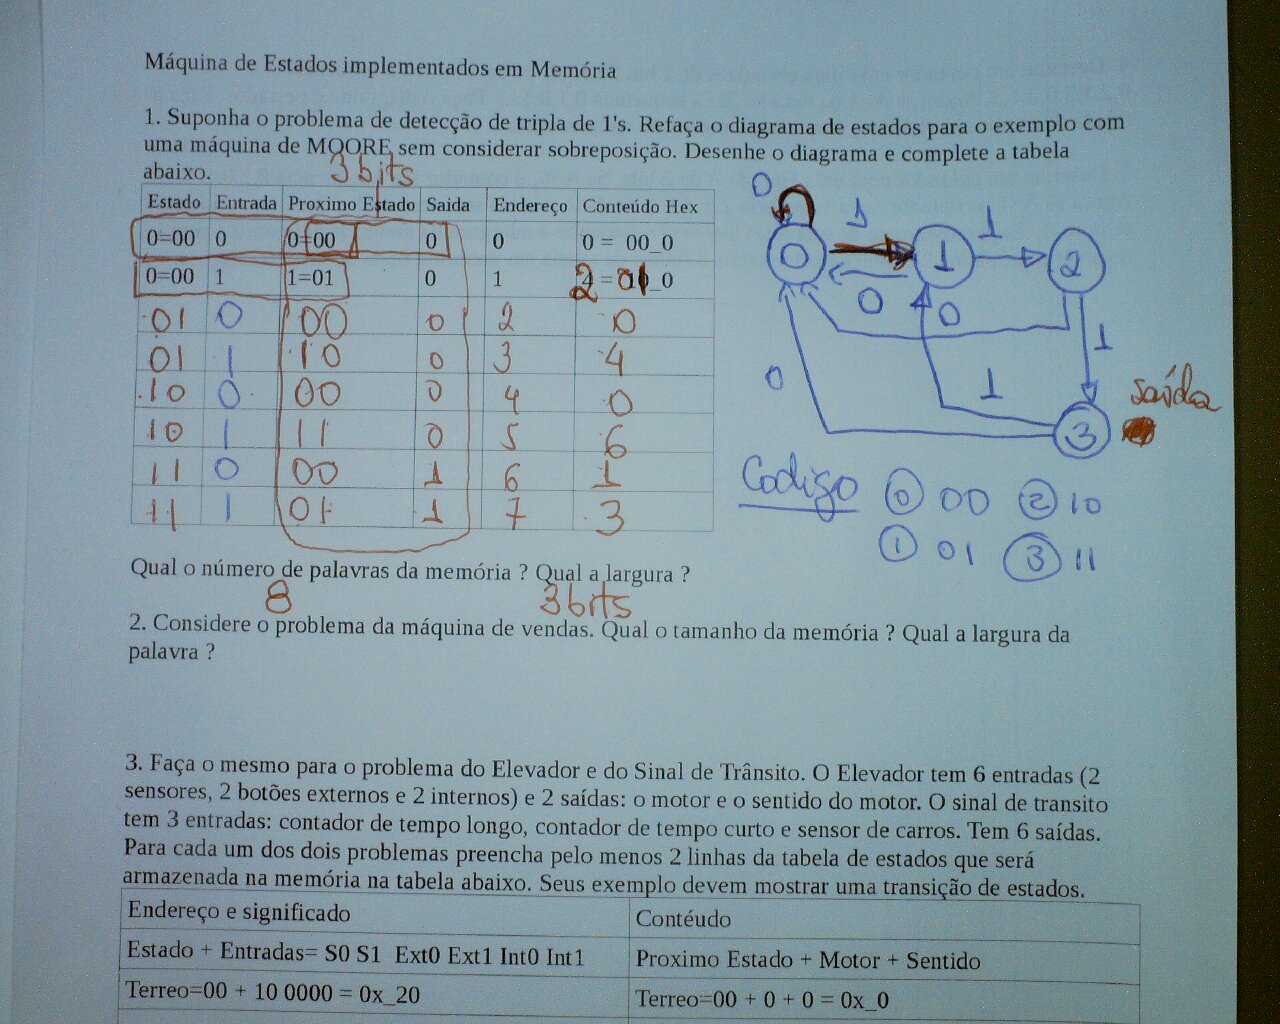 Máquina de Estados implementados em Memória
1. Suponha o problema de detecção de tripla de 1's. Refaça o diagrama de estados para o exemplo com
uma máquina de MOORE sem considerar sobreposição. Desenhe o diagrama e complete a tabela
abaixo.
3 bits
Estado Entrada Proximo Estado Saida Endereço Conteúdo Hex
0=00 0 0=00 0 0 0 = 00_0
0=00 1 1=01 0 1 2 = 01_0
01 0 00 0 2 0
01 1 10 0 3 4
10 0 00 0 4 0
10 1 11 0 5 6
11 0 00 1 6 1
11 1 01 1 7 3
0
1 1
0 1 2
0 0
1
0 1 saída
3
Codigo 0 00 2 10
1 01 3 11
Qual o número de palavras da memória ? Qual a largura ?
8 3 bits
2. Considere o problema da máquina de vendas. Qual o tamanho da memória ? Qual a largura da
palavra ?
3. Faça o mesmo para o problema do Elevador e do Sinal de Trânsito. O Elevador tem 6 entradas (2
sensores, 2 botões externos e 2 internos) e 2 saídas: o motor e o sentido do motor. O sinal de transito
tem 3 entradas: contador de tempo longo, contador de tempo curto e sensor de carros. Tem 6 saídas.
Para cada um dos dois problemas preencha pelo menos 2 linhas da tabela de estados que será
armazenada na memória na tabela abaixo. Seus exemplo devem mostrar uma transição de estados.
Endereço e significado Contéudo
Estado + Entradas= S0 S1 Ext0 Ext1 Int0 Int1 Proximo Estado + Motor + Sentido
Terreo=00 + 10 0000 = 0x_20 Terreo=00 + 0 + 0 = 0x_0